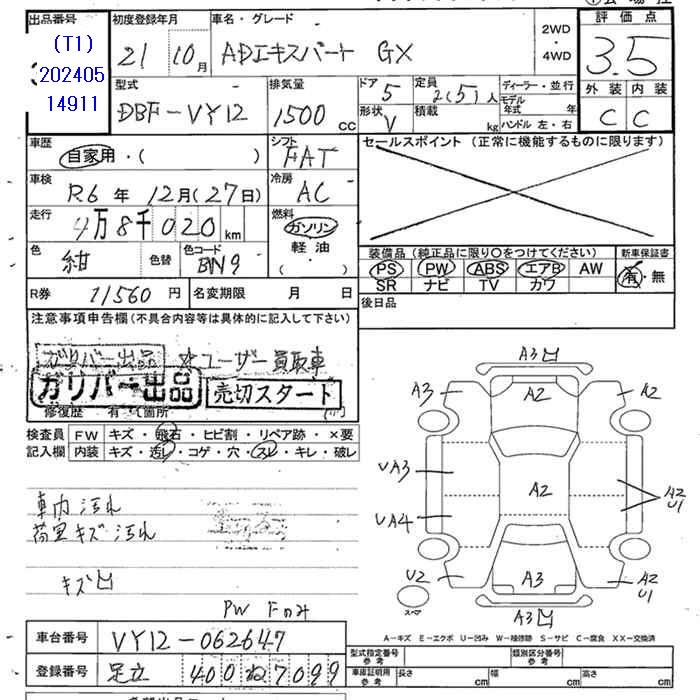 出品番号
(T1)
202405
14911
初度登録年月
21 10月
車名・グレード
ADエキスパート GX
2WD
・
4WD
評価点
3.5
外装 内装
C C
型式
DBF-VY12
排気量
1500 cc
ドア 5
形状 V
定員 2(5)人
積載 kg
ディーラー・並行
モデル年式 年
ハンドル 左・右
車歴
自家用・( )
シフト
FAT
セールスポイント (正常に機能するものに限ります)
車検
R6年 12月(27日)
冷房
AC
走行
4万8千020km
燃料
ガソリン
軽油
・( )
色
紺
色替
色コード
BW9
装備品(純正品に限り〇をつけてください)
新車保証書
PS PW ABS エアB AW
有・無
SR ナビ TV カワ
R券 11560円
名変期限 月 日
後日品
注意事項申告欄(不具合内容等は具体的に記入して下さい)
ガリバー出品 ☆ユーザー買取車
ガリバー出品
売切スタート
修復歴 有 箇所
検査員
記入欄
FW キズ・飛石・ヒビ割・リペア跡・×要
内装 キズ・汚レ・コゲ・穴・スレ・キレ・破レ
車内 汚れ
荷室キズ 汚れ
キズ凹
PW Fのみ
A3凹
A3
A2
A2
UA3
A2
A2
U1
UA4
U2
A3
A2
U1
スペア
A3凹
A-キズ E-エクボ U-凹み W-補修跡 S-サビ C-腐食 XX-交換済
車台番号
VY12-062647
登録番号
足立 400 ね 7099
型式指定番号
参考
類別区分番号
参考
車庫証明用
参考
長さ cm
幅 cm
高さ cm